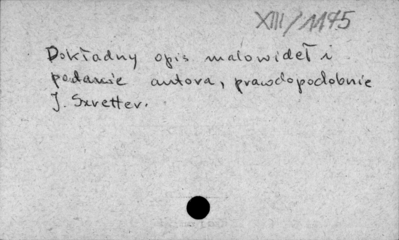 XIII/1175
Dokładny opis malowideł i
podanie autora, prawdopodobnie
J. Szretter.